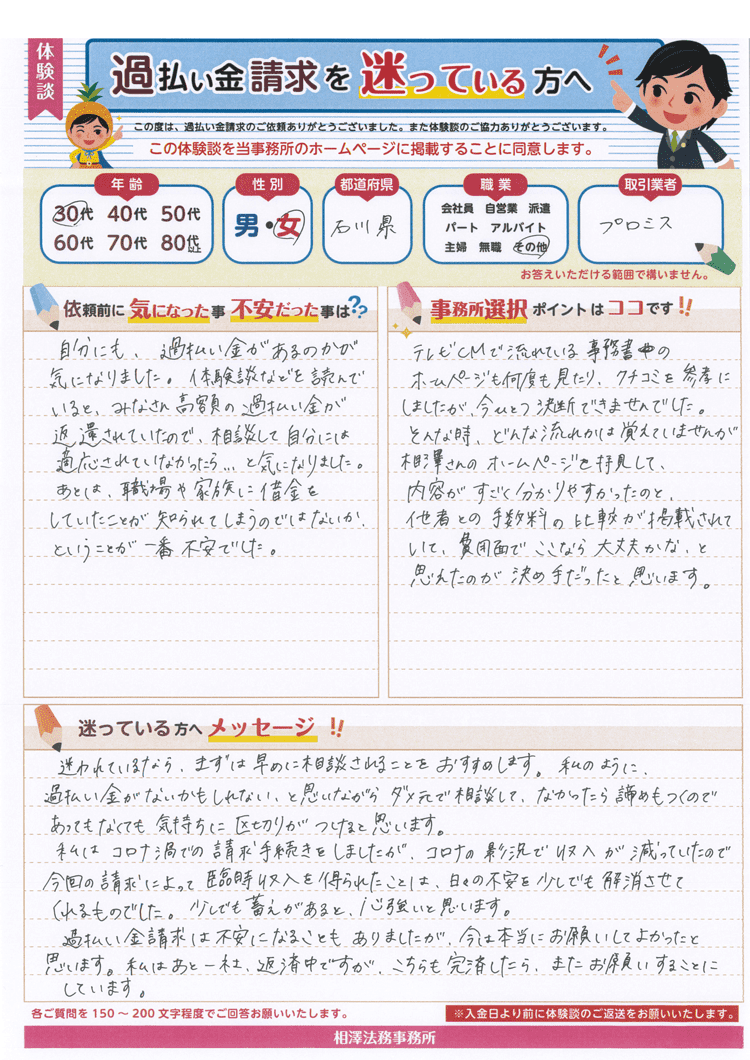 体験談
過払い金請求を迷っている方へ
この度は、過払い金請求のご依頼ありがとうございました。また体験談のご協力ありがとうございます。
この体験談を当事務所のホームページに掲載することに同意します。
年齢
30代 40代 50代
60代 70代 80代以上
性別
男・女
都道府県
石川県
職業
会社員 自営業 派遣
パート アルバイト
主婦 無職 その他
取引業者
プロミス
お答えいただける範囲で構いません。
依頼前に気になった事 不安だった事は??
自分にも、過払い金があるのかが
気になりました。体験談などを読んで
いると、みなさん高額の過払い金が
返還されていたので、相談して自分には
適応されていなかったら… と気になりました。
あとは、職場や家族に借金を
していたことが知られてしまうのではないか、
ということが一番不安でした。
事務所選択ポイントはココです!!
テレビCMで流れている事務書やの
ホームページも何度も見たり、クチコミを参考に
しましたが、今ひとつ決断できませんでした。
そんな時、どんな流れかは覚えていませんが
相澤さんのホームページを拝見して、
内容がすごく分かりやすかったのと、
他者との手数料の比較が掲載されて
いて、費用面でここなら大丈夫かな、と
思えたのが決め手だったと思います。
迷っている方へメッセージ!!
迷われているなら、まずは早めに相談されることをおすすめします。私のように、
過払い金がないかもしれない、と思いながらダメ元で相談して、なかったら諦めもつくので
あってもなくても気持ちに区切りがつけると思います。
私はコロナ渦での請求手続きをしましたが、コロナの影況で収入が減っていたので
今回の請求によって臨時収入を得られたことは、日々の不安を少しでも解消させて
くれるものでした。少しでも蓄えがあると、心強いと思います。
過払い金請求は不安になることもありましたが、今は本当にお願いしてよかったと
思います。私はあと一社、返済中ですが、こちらも完済したら、またお願いすることに
しています。
各ご質問を150〜200文字程度でご回答お願いいたします。
※入金日より前に体験談のご返送をお願いいたします。
相澤法務事務所